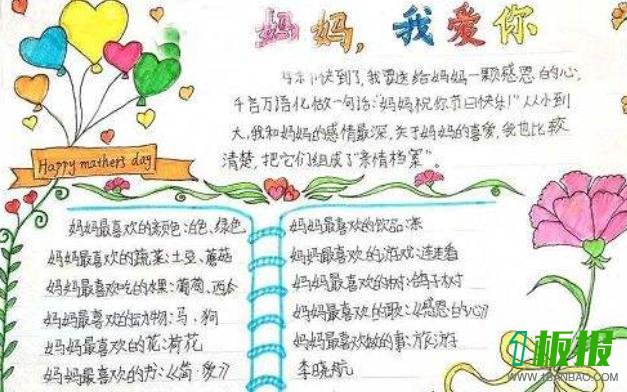 妈妈,我爱你
母亲节快到了,我要送给妈妈一颗感恩的心,
千言万语化做一句话:"妈妈祝你节日快乐!"从小到
大,我和妈妈的感情最深,关于妈妈的喜爱,我也比较
清楚,把它们组成了"亲情档案"。
Happy mathers day
妈妈最喜欢的颜色:白色、绿色
妈妈最喜欢的蔬菜:土豆、蘑菇
妈妈最喜欢吃的水果:葡萄、西瓜
妈妈最喜欢的动物:马、狗
妈妈最喜欢的花:荷花
妈妈最喜欢的书:《简·爱》
妈妈最喜欢的饮品:茶
妈妈最喜欢的游戏:连连看
妈妈最喜欢的树:鸽子树
妈妈最喜欢的歌:《感恩的心》
妈妈最喜欢做的事:旅游
李晓航
板报
WWW.1BANBAO.COM